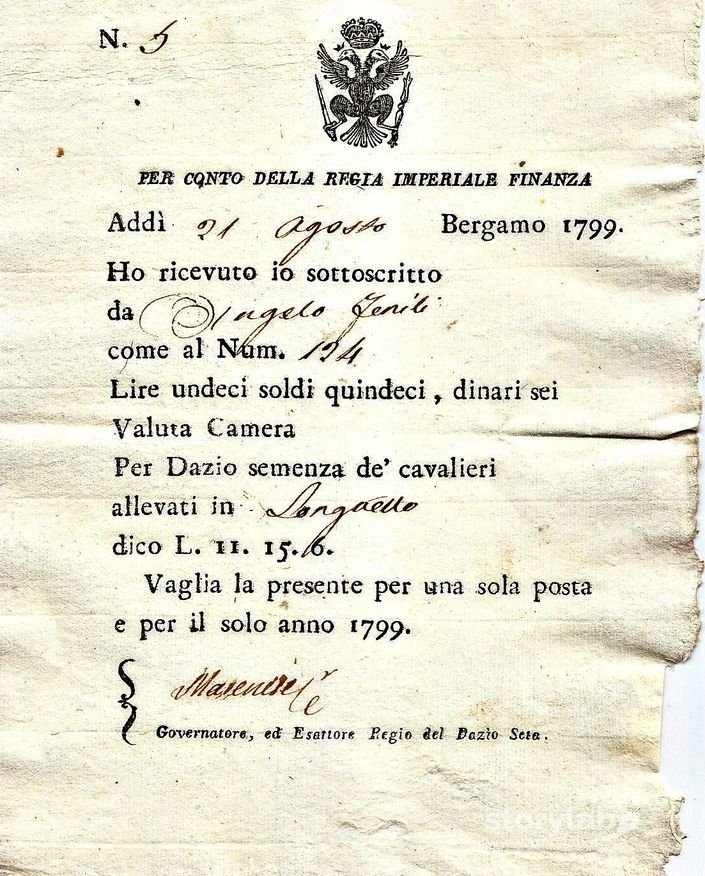 N. 5
PER CONTO DELLA REGIA IMPERIALE FINANZA
Addì 21 Agosto Bergamo 1799.
Ho ricevuto io sottoscritto
da Angelo Zenili
come al Num. 124
Lire undeci soldi quindeci, dinari sei
Valuta Camera
Per Dazio semenza de' cavalieri
allevati in Longuello
dico L. 11. 15. 6.
Vaglia la presente per una sola posta
e per il solo anno 1799.
Governatore, ed Esattore Regio del Dazio Seta.